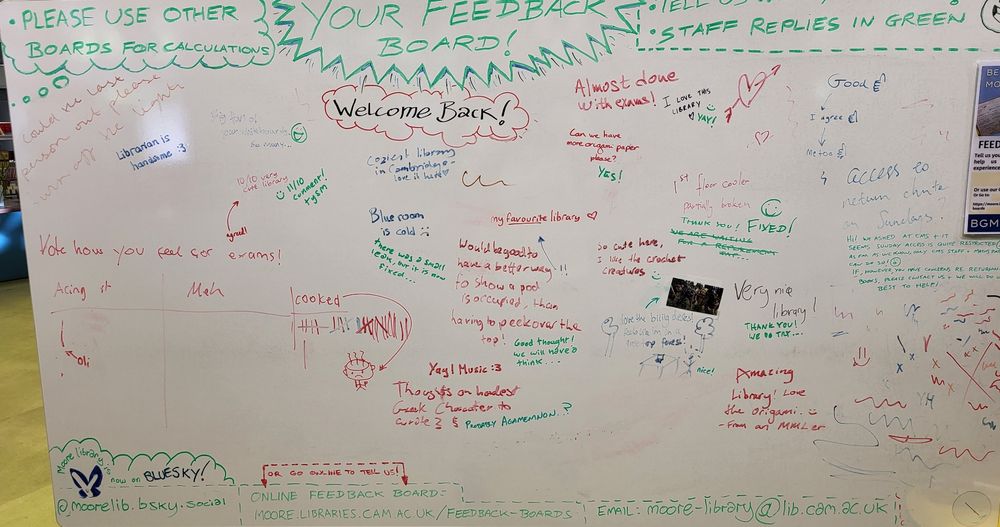 • PLEASE USE OTHER
BOARDS FOR CALCULATIONS
YOUR FEEDBACK
BOARD!
• STAFF REPLIES IN GREEN
Welcome Back!
could the last
person out please
turn off the lights
Librarian is
handsome :3
10/10 very
cute library
11/10
comment!
tysm
agreed!
Cosiest library
in Cambridge -
love it here
Blue room
is cold
there was a small
leak, but it is now
fixed...
Almost done
with exams!
I LOVE THIS
LIBRARY
YAY!
Can we have
more origami paper
please?
YES!
1st floor cooler
partially broken
THANK YOU! FIXED!
WE ARE WAITING
FOR A REPLACEMENT
Good
I agree
Me too
access to
return chute
on Sundays?
Hi! WE ASKED AT CMS + IT
SEEMS SUNDAY ACCESS IS QUITE RESTRICTED
IF, HOWEVER, YOU HAVE CONCERNS RE. RETURNING
BOOKS, PLEASE CONTACT US + WE WILL DO
BEST TO HELP!
FEED
Tell us
BGM
my favourite library
Would be good to
have a better way
to show a pod
is occupied, than
having to peek over the
top!
Good thought!
we will have a
think...
so cute here,
I like the crochet
creatures
nice!
Very nice
library!
THANK YOU!
WE DO TRY...
Vote how you feel for exams!
Acing it
Meh
cooked
Yay! Music :3
Thoughts on hardest
Greek Character to
write?
PROBABLY AGAMEMNON..?
Amazing
Library! Love
the origami.
- From an MMLer
Moore library is
now on BLUESKY!
@moorelib.bsky.social
OR GO ONLINE TO TELL US!
ONLINE FEEDBACK BOARD:
MOORE.LIBRARIES.CAM.AC.UK/FEEDBACK-BOARDS
EMAIL: moore-library@lib.cam.ac.uk